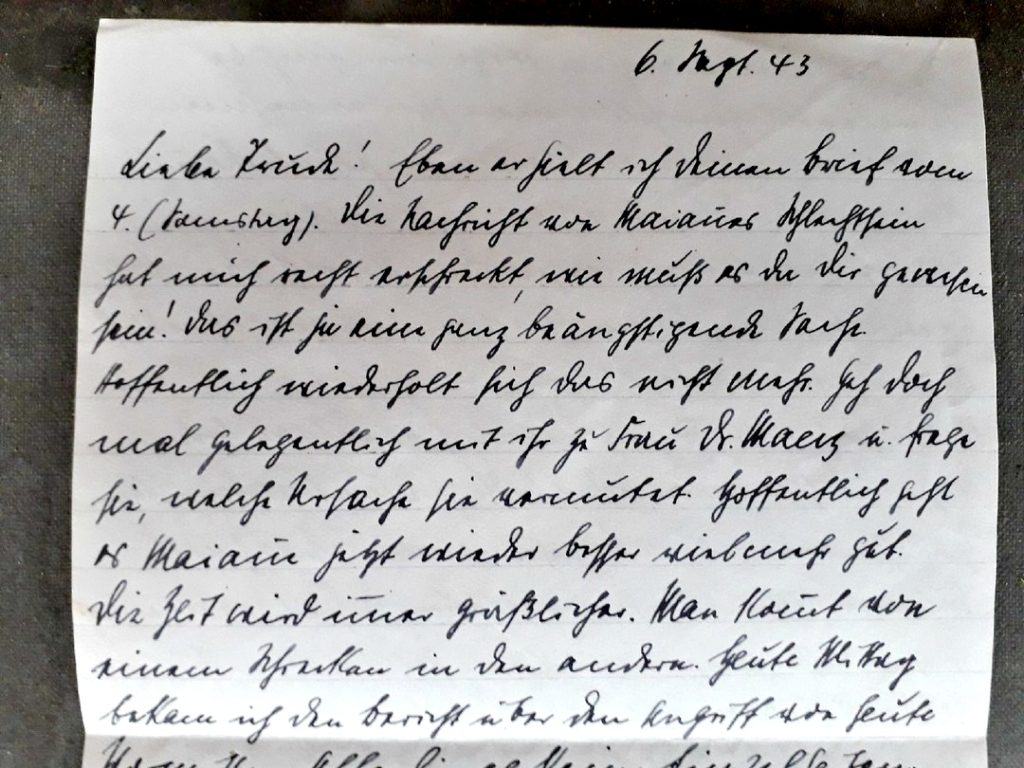 6. Sept. 43
Liebe Trude! Eben erhielt ich Deinen Brief vom
4. (Samstag). Die Nachricht von Maiaues Schlechtsein
hat mich recht erschreckt, wie muß es da Dir gewesen
sein! Das ist ja eine ganz beängstigende Sache.
Hoffentlich wiederholt sich das nicht mehr. Geh doch
mal gelegentlich mit ihr zu Frau Dr. u. frage
sie, welche Ursache sie vermutet. Hoffentlich geht
es jetzt wieder besser vielmehr gut.
Die Zeit wird im̅er gräßlicher. Man kom̅t von
einem Schrecken in den andern. Heute Mittag
bekam ich den Bericht über den Angriff von heute